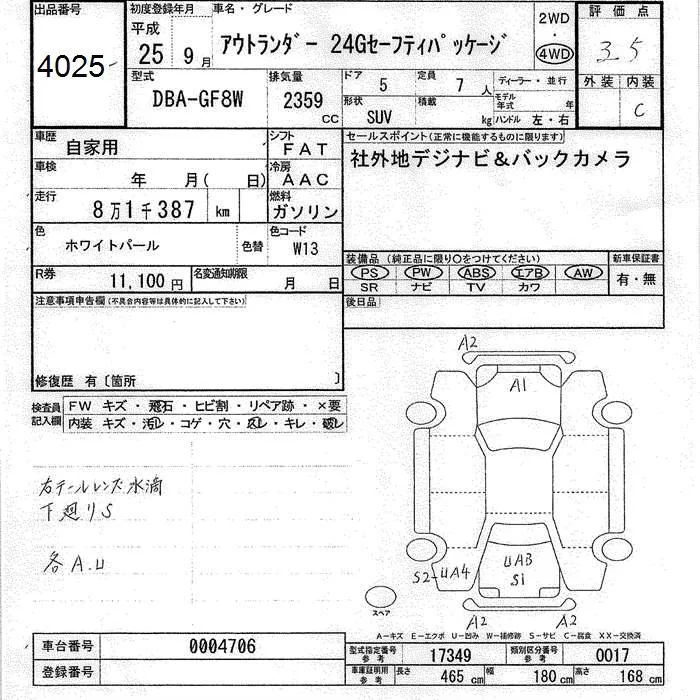 出品番号
4025-
初度登録年月
平成
25 9月
車名・グレード
アウトランダー 24Gセーフティパッケージ
2WD
・
4WD
評価点
3.5
外装 内装
C
型式
DBA-GF8W
排気量
2359
CC
ドア 5
定員 7 人
ディーラー・並行
形状
SUV
積載
kg
モデル年式 年
ハンドル 左・右
車歴 自家用
シフト
FAT
車検 年 月( 日)
冷房
AAC
走行
8万1千387 km
燃料
ガソリン
色
ホワイトパール
色替
色コード
W13
R券
11,100円
名変通知期限
月 日
セールスポイント(正常に機能するものに限ります)
社外地デジナビ&バックカメラ
装備品(純正品に限り○をつけてください)
新車保証書
PS PW ABS エアB AW
有・無
SR ナビ TV カワ
後日品
注意事項申告欄(不具合内容等は具体的に記入して下さい)
修復歴 有〔箇所 〕
検査員記入欄
FW キズ・飛石・ヒビ割・リペア跡・×要
内装 キズ・汚レ・コゲ・穴・スレ・キレ・破レ
右テールレンズ水滴
下廻りS
各A.U
A2
A1
S2-UA4
UAB
S1
A2 A2
スペア
A-キズ E-エクボ U-凹み W-補修跡 S-サビ C-腐食 XX-交換済
車台番号 0004706
登録番号
型式指定番号参考 17349
類別区分番号参考 0017
車庫証明用参考 長さ 465 cm 幅 180 cm 高さ 168 cm